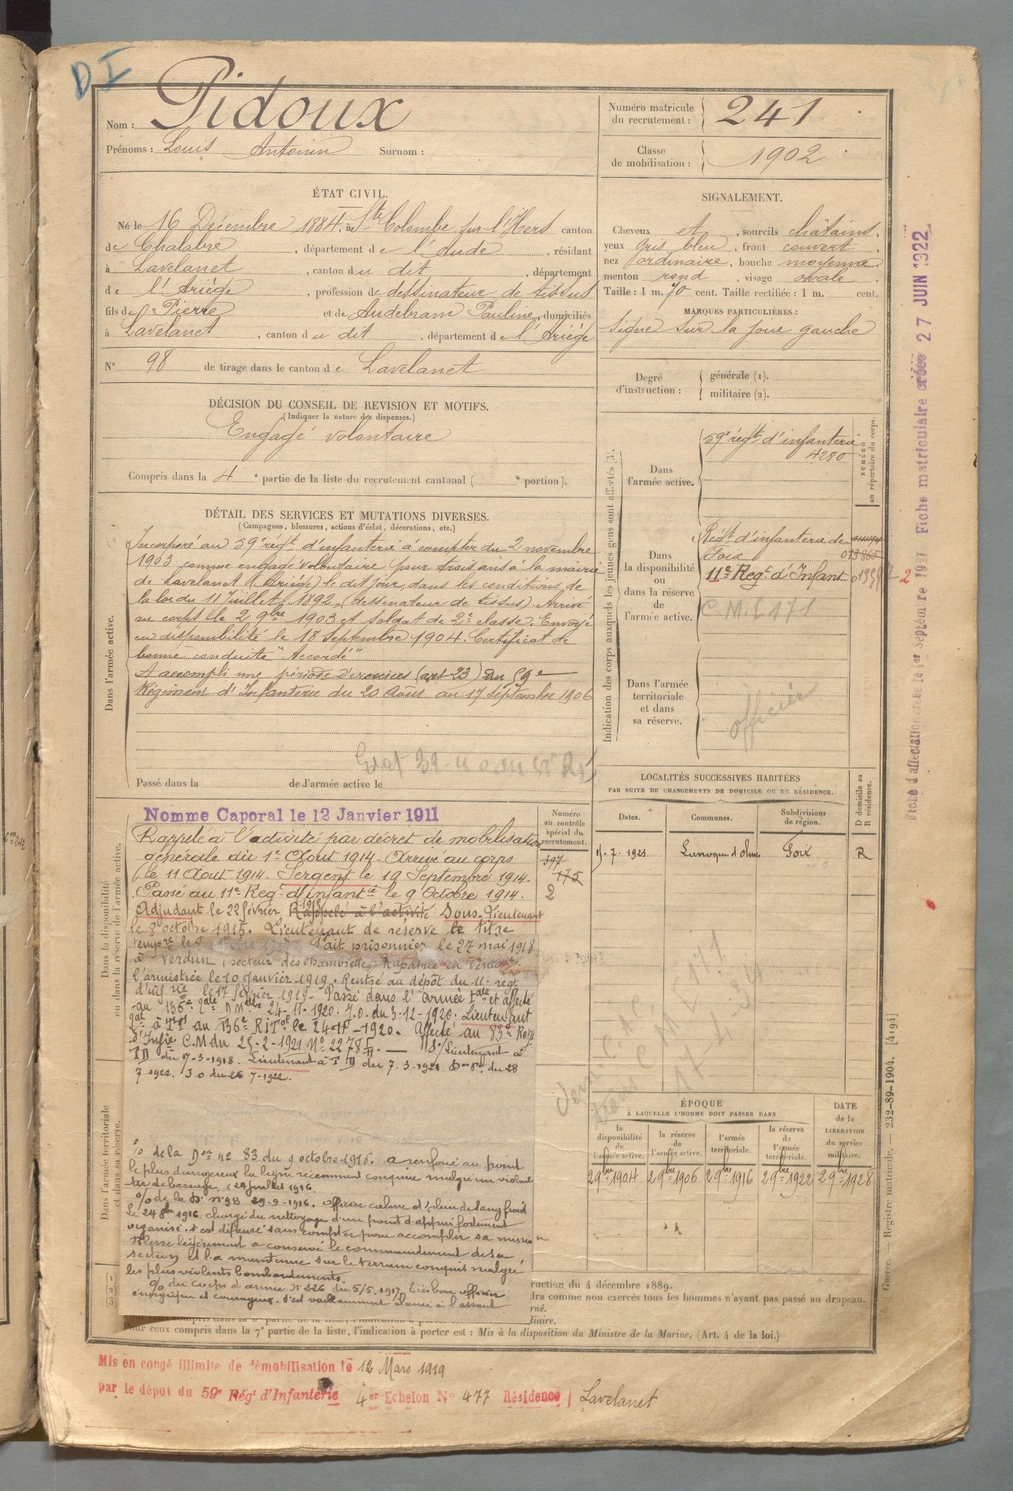 DI
Nom : Pidoux
Prénoms : Louis Antonin Surnom :
Numéro matricule du recrutement : 241
Classe de mobilisation : 1902
ÉTAT CIVIL.
Né le 16 Décembre 1884, à Ste Colombe sur l'Hers canton
de Chalabre, département de l'Aude, résidant
à Lavelanet, canton du dit, département
de l'Ariège, profession de dessinateur de tissus
fils de Pierre et de Audebram Pauline, domiciliés
à Lavelanet, canton du dit, département de l'Ariège
N° 98 de tirage dans le canton de Lavelanet
SIGNALEMENT.
Cheveux et, sourcils châtains,
yeux gris bleu, front couvert
nez ordinaire, bouche moyenne
menton rond, visage ovale
Taille : 1 m. 70 cent. Taille rectifiée : 1 m. cent.
MARQUES PARTICULIÈRES :
Signe sur la joue gauche
Degré d'instruction : générale (1). militaire (2).
DÉCISION DU CONSEIL DE REVISION ET MOTIFS.
(Indiquer la nature des dispenses.)
Engagé volontaire
Compris dans la 4e partie de la liste du recrutement cantonal ( e portion).
DÉTAIL DES SERVICES ET MUTATIONS DIVERSES.
(Campagnes, blessures, actions d'éclat, décorations, etc.)
Dans l'armée active.
Incorporé au 59e régt d'infanterie à compter du 2 novembre
1903 comme engagé volontaire pour trois ans à la mairie
de Lavelanet (Ariège) le dit jour, dans les conditions de
la loi du 11 Juillet 1892, dessinateur de tissus. Arrivé
au corps le 2 9bre 1903 et soldat de 2e classe. Envoyé
en disponibilité le 18 Septembre 1904. Certificat de
bonne conduite "Accordé"
A accompli une période d'exercices (art 23) au 59e
Régiment d'Infanterie du 20 Août au 17 septembre 1906
Passé dans la de l'armée active le
Indication des corps auxquels les jeunes gens sont affectés (3).
NUMÉRO au répertoire du corps.
Dans l'armée active.
59e régt d'infanterie
4280
Dans la disponibilité ou dans la réserve de l'armée active.
Régt d'infanterie de
Foix
11e Regt d'Infant
Dans l'armée territoriale et dans sa réserve.
officier
LOCALITÉS SUCCESSIVES HABITÉES
PAR SUITE DE CHANGEMENTS DE DOMICILE OU DE RÉSIDENCE.
Dates. Communes. Subdivisions de région. D domicile ou R résidence.
Foix R
Dans la disponibilité ou dans la réserve de l'armée active.
Numéro au contrôle spécial du recrutement.
397
175
2
Nomme Caporal le 12 Janvier 1911
Rappelé à l'activité par décret de mobilisation
générale du 1er Août 1914. Arrivé au corps
le 11 Août 1914. Sergent le 19 Septembre 1914.
Passé au 11e Reg. d'Infantie le 9 Octobre 1914.
Adjudant le 22 février 1915 Rappelé à l'activité Sous-Lieutenant
le 8 octobre 1915. Lieutenant de réserve à titre
tempre le Fait prisonnier le 27 mai 1918
à Verdun (secteur des chambrettes) Rapatrié en vertu de
l'armistice le 10 janvier 1919. Rentré au dépôt du 11e regt
d'inf rie le 17 février 1919. Passé dans l'armée tale et affecté
24-11-1920. J.O. du 3-12-1920. Lieutenant
au 136e RITal le 24-11-1920. Affecté au 83e Regt
d'Infrie C.M du 25-2-1921 N° 2278 S/Lieutenant à
Lieutenant à T D du 7.3.1921. du 28
J.O du 26 7-1922.
Dans l'armée territoriale et dans sa réserve.
% de la Don n° 83 du 9 octobre 1916. a renforcé au point
le plus dangereux la ligne récemment conquise malgré un violent
tir de barrage. (24 Juillet 1916.
% de la Don n° 98 29-9-1916. officier calme et plein de sang froid
chargé du nettoyage d'un point d'appui fortement
organisé, s'est dépensé sans compter pour accomplir sa mission
Blessé légèrement a conservé le commandement de sa
section et l'a maintenue sur le terrain conquis malgré
les plus violents bombardements.
% du corps d'armée N° 226 du 5/5.1917 très bon officier
énergique et courageux. s'est vaillamment élancé à l'assaut
ÉPOQUE
A LAQUELLE L'HOMME DOIT PASSER DANS
la disponibilité de l'armée active. la réserve de l'armée active. l'armée territoriale. la réserve de l'armée territoriale.
DATE de la LIBÉRATION du service militaire.
2 9bre 1904 2 9bre 1906 2 9bre 1916 2 9bre 1922 2 9bre 1928
ruction du 4 décembre 1889.
dra comme non exercés tous les hommes n'ayant pas passé au drapeau.
rné.
liaire.
Pour ceux compris dans la 7e partie de la liste, l'indication à porter est : Mis à la disposition du Ministre de la Marine. (Art. 4 de la loi.)
Mis en congé illimité de démobilisation le 12 Mars 1919
par le dépôt du 59e Régt d'Infanterie 4er Echelon N° 477 Résidence Lavelanet
Guerre. — Registre matricule. — 232-89-1904. [4194]
Fiche matriculaire créée 27 JUIN 1922